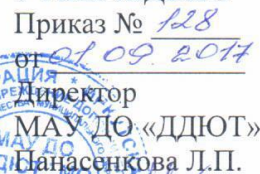 Приказ № 128
от 01.09.2017
Директор
МАУ ДО «ДДЮТ»
Панасенкова Л.П.